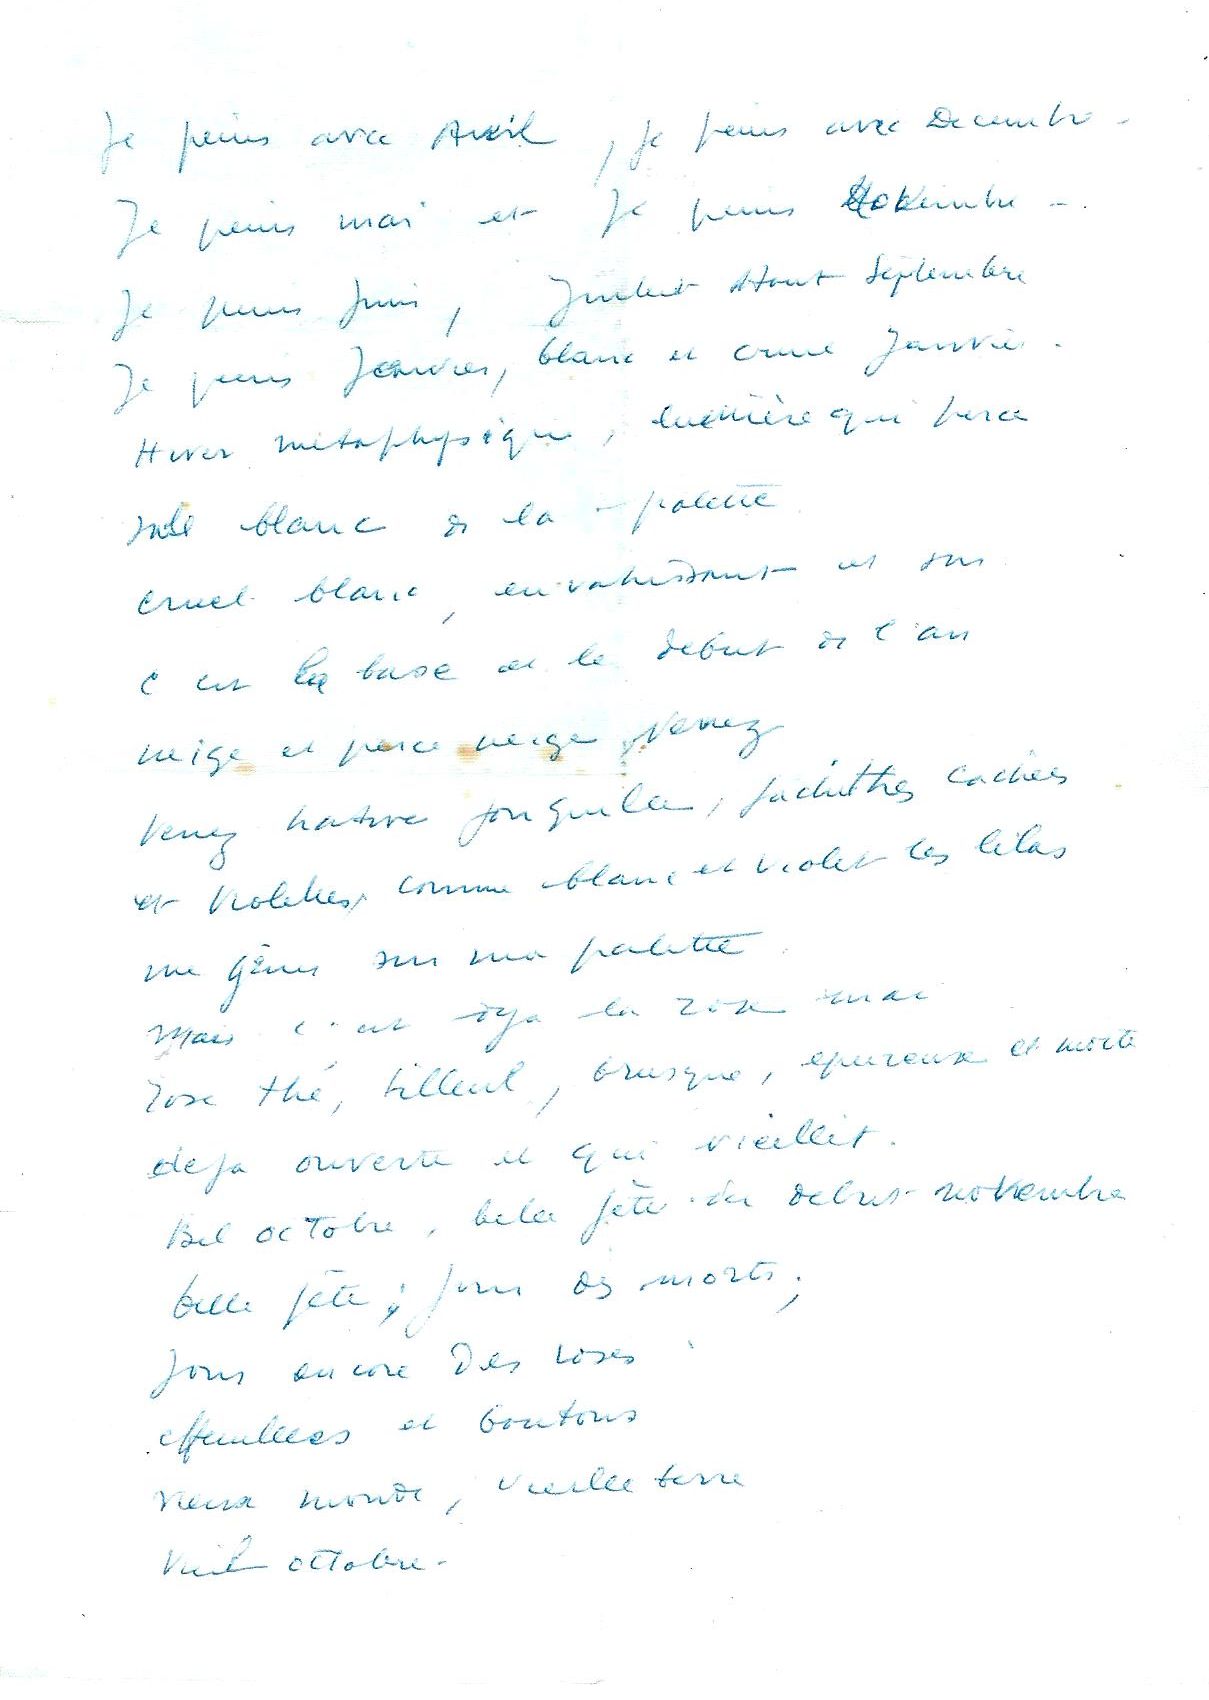 Je peins avec Avril, je peins avec Decembre -
Je peins mai et Je peins Novembre -
Je peins Juin, Juillet Aout Septembre
Je peins Janvier, blanc et cruel Janvier.
Hiver métaphysique, lumière qui perce
sale blanc de la palette
cruel blanc, envahissant et sur
c est la base et le debut de l'an
neige et perce neige, venez
Venez hative jonquille, jacinthes cachées
et violettes, comme blanc et violet les lilas
me gêne sur ma palette.
Mais c'est deja la rose mai
rose thé, tilleul, brusque, et morte
deja ouverte et qui vieillit.
Bel octobre, belle fête du debut novembre
belle fête; jour des morts;
Jour encore Des roses
effeuillees et boutons
vieux monde, vieille terre
Vieil octobre -